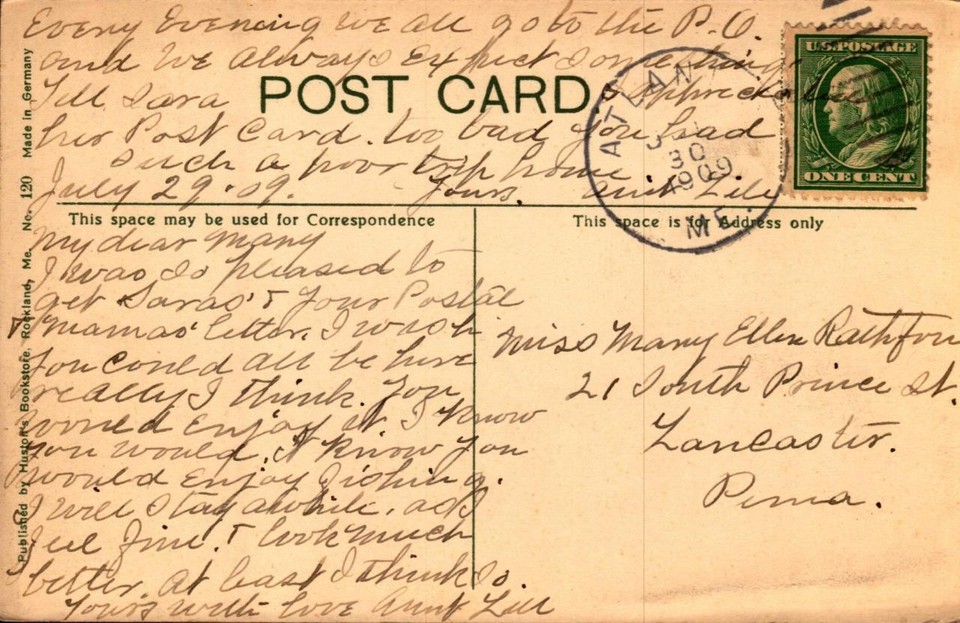 Every Evening we all go to the P.O.
and we always expect something
Tell Sara I appreciate
her Post Card. too bad you had
such a poor trip home
July 29.09. Yours. Aunt Lill
POST CARD
ATLANTI
JUL
30
1909
ME.
U.S. POSTAGE
ONE CENT
This space may be used for Correspondence
This space is for Address only
My dear Mary
I was so pleased to
get Saras' & Your Postal
& mamas' letter. I wish
You could all be here
really I think. You
would Enjoy it I know
You would, I know You
would Enjoy Fishing.
I will stay awhile. as I
feel fine. & look much
better. At least I think so.
Yours with love Aunt Lill
Miss Mary Ellen Rathfon
21 South Prince St.
Lancaster.
Penna.
Published by Huston's Bookstore, Rockland, Me. No. 120 Made in Germany